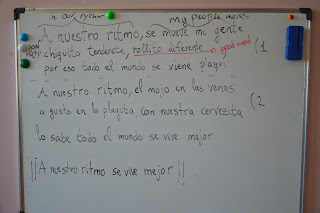 my people moves
A nuestro ritmo, se mueve mi gente
chiquito tendencia, rollito diferente → good mood (1
por eso todo el mundo se viene p'aquí
A nuestro ritmo, el mojo en las venas
a gusto en la playita con nuestra cervezita (2
lo sabe todo el mundo se vive mejor
¡¡A nuestro ritmo se vive mejor!!